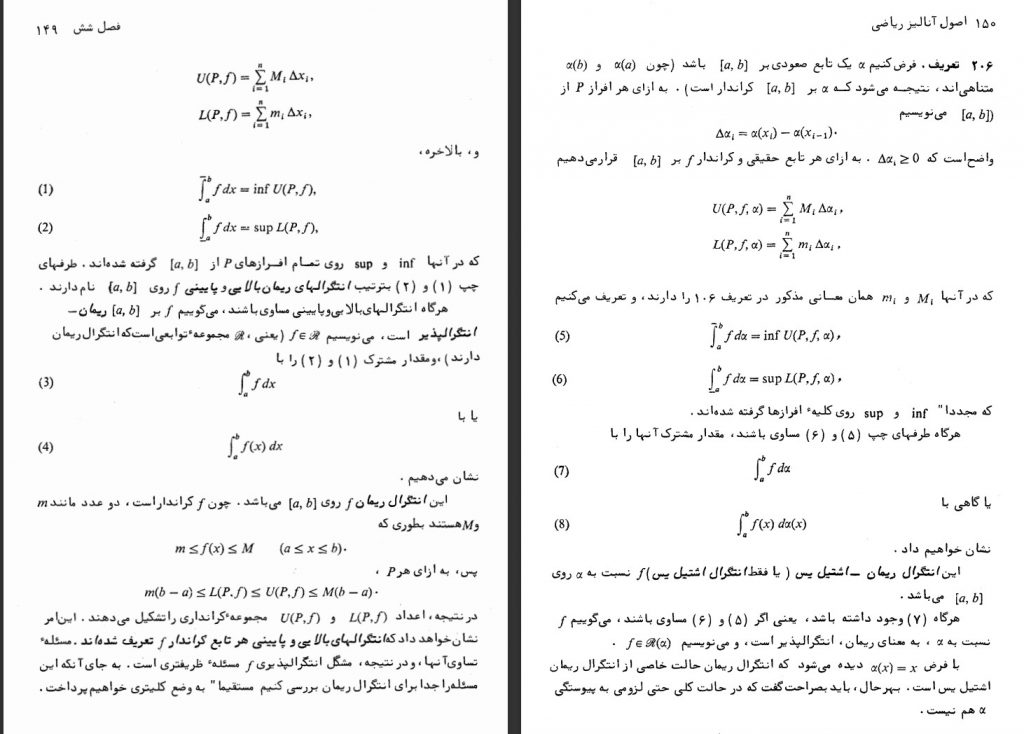 فصل شش ۱۴۹
U(P, f) = ∑_{i=1}^{n} M_i Δx_i,
L(P, f) = ∑_{i=1}^{n} m_i Δx_i,
و، بالاخره،
(1) ‾∫_a^b f dx = inf U(P, f),
(2) _∫_a^b f dx = sup L(P, f),
که در آنها inf و sup روی تمام افرازهای P از [a, b] گرفته شده‌اند. طرفهای
چپ (۱) و (۲) بترتیب انتگرالهای ریمان بالایی و پایینی f روی [a, b] نام دارند.
هرگاه انتگرالهای بالایی و پایینی مساوی باشند، می‌گوییم f بر [a, b] ریمان –
انتگرالپذیر است، می‌نویسیم f ∈ ℛ (یعنی، ℛ مجموعهٔ توابعی است که انتگرال ریمان
دارند)، و مقدار مشترک (۱) و (۲) را با
(3) ∫_a^b f dx
یا با
(4) ∫_a^b f(x) dx
نشان می‌دهیم.
این انتگرال ریمان f روی [a, b] می‌باشد. چون f کراندار است، دو عدد مانند m
و M هستند بطوری که
m ≤ f(x) ≤ M (a ≤ x ≤ b).
پس، به ازای هر P،
m(b − a) ≤ L(P, f) ≤ U(P, f) ≤ M(b − a).
در نتیجه، اعداد L(P, f) و U(P, f) مجموعهٔ کرانداری را تشکیل می‌دهند. این امر
نشان خواهد داد که انتگرالهای بالایی و پایینی هر تابع کراندار f تعریف شده‌اند. مسئلهٔ
تساوی آنها، و در نتیجه، مشگل انتگرالپذیری f مسئلهٔ ظریفتری است. به جای آنکه این
مسئله را جدا برای انتگرال ریمان بررسی کنیم مستقیما" به وضع کلیتری خواهیم پرداخت.
۱۵۰ اصول آنالیز ریاضی
۲۰۶ تعریف. فرض کنیم α یک تابع صعودی بر [a, b] باشد (چون α(a) و α(b)
متناهی‌اند، نتیجه می‌شود که α بر [a, b] کراندار است). به ازای هر افراز P از
[a, b]) می‌نویسیم
Δα_i = α(x_i) − α(x_{i−1}).
واضح است که Δα_i ≥ 0. به ازای هر تابع حقیقی و کراندار f بر [a, b] قرار می‌دهیم
U(P, f, α) = ∑_{i=1}^{n} M_i Δα_i,
L(P, f, α) = ∑_{i=1}^{n} m_i Δα_i,
که در آنها M_i و m_i همان معانی مذکور در تعریف ۱۰۶ را دارند، و تعریف می‌کنیم
(5) ‾∫_a^b f dα = inf U(P, f, α),
(6) _∫_a^b f dα = sup L(P, f, α),
که مجددا" inf و sup روی کلیهٔ افرازها گرفته شده‌اند.
هرگاه طرفهای چپ (۵) و (۶) مساوی باشند، مقدار مشترک آنها را با
(7) ∫_a^b f dα
یا گاهی با
(8) ∫_a^b f(x) dα(x)
نشان خواهیم داد.
این انتگرال ریمان – اشتیل یس (یا فقط انتگرال اشتیل یس) f نسبت به α روی
[a, b] می‌باشد.
هرگاه (۷) وجود داشته باشد، یعنی اگر (۵) و (۶) مساوی باشند، می‌گوییم f
نسبت به α، به معنای ریمان، انتگرالپذیر است، و می‌نویسیم f ∈ ℛ(α).
با فرض α(x) = x دیده می‌شود که انتگرال ریمان حالت خاصی از انتگرال ریمان
اشتیل یس است. بهرحال، باید بصراحت گفت که در حالت کلی حتی لزومی به پیوستگی
α هم نیست.